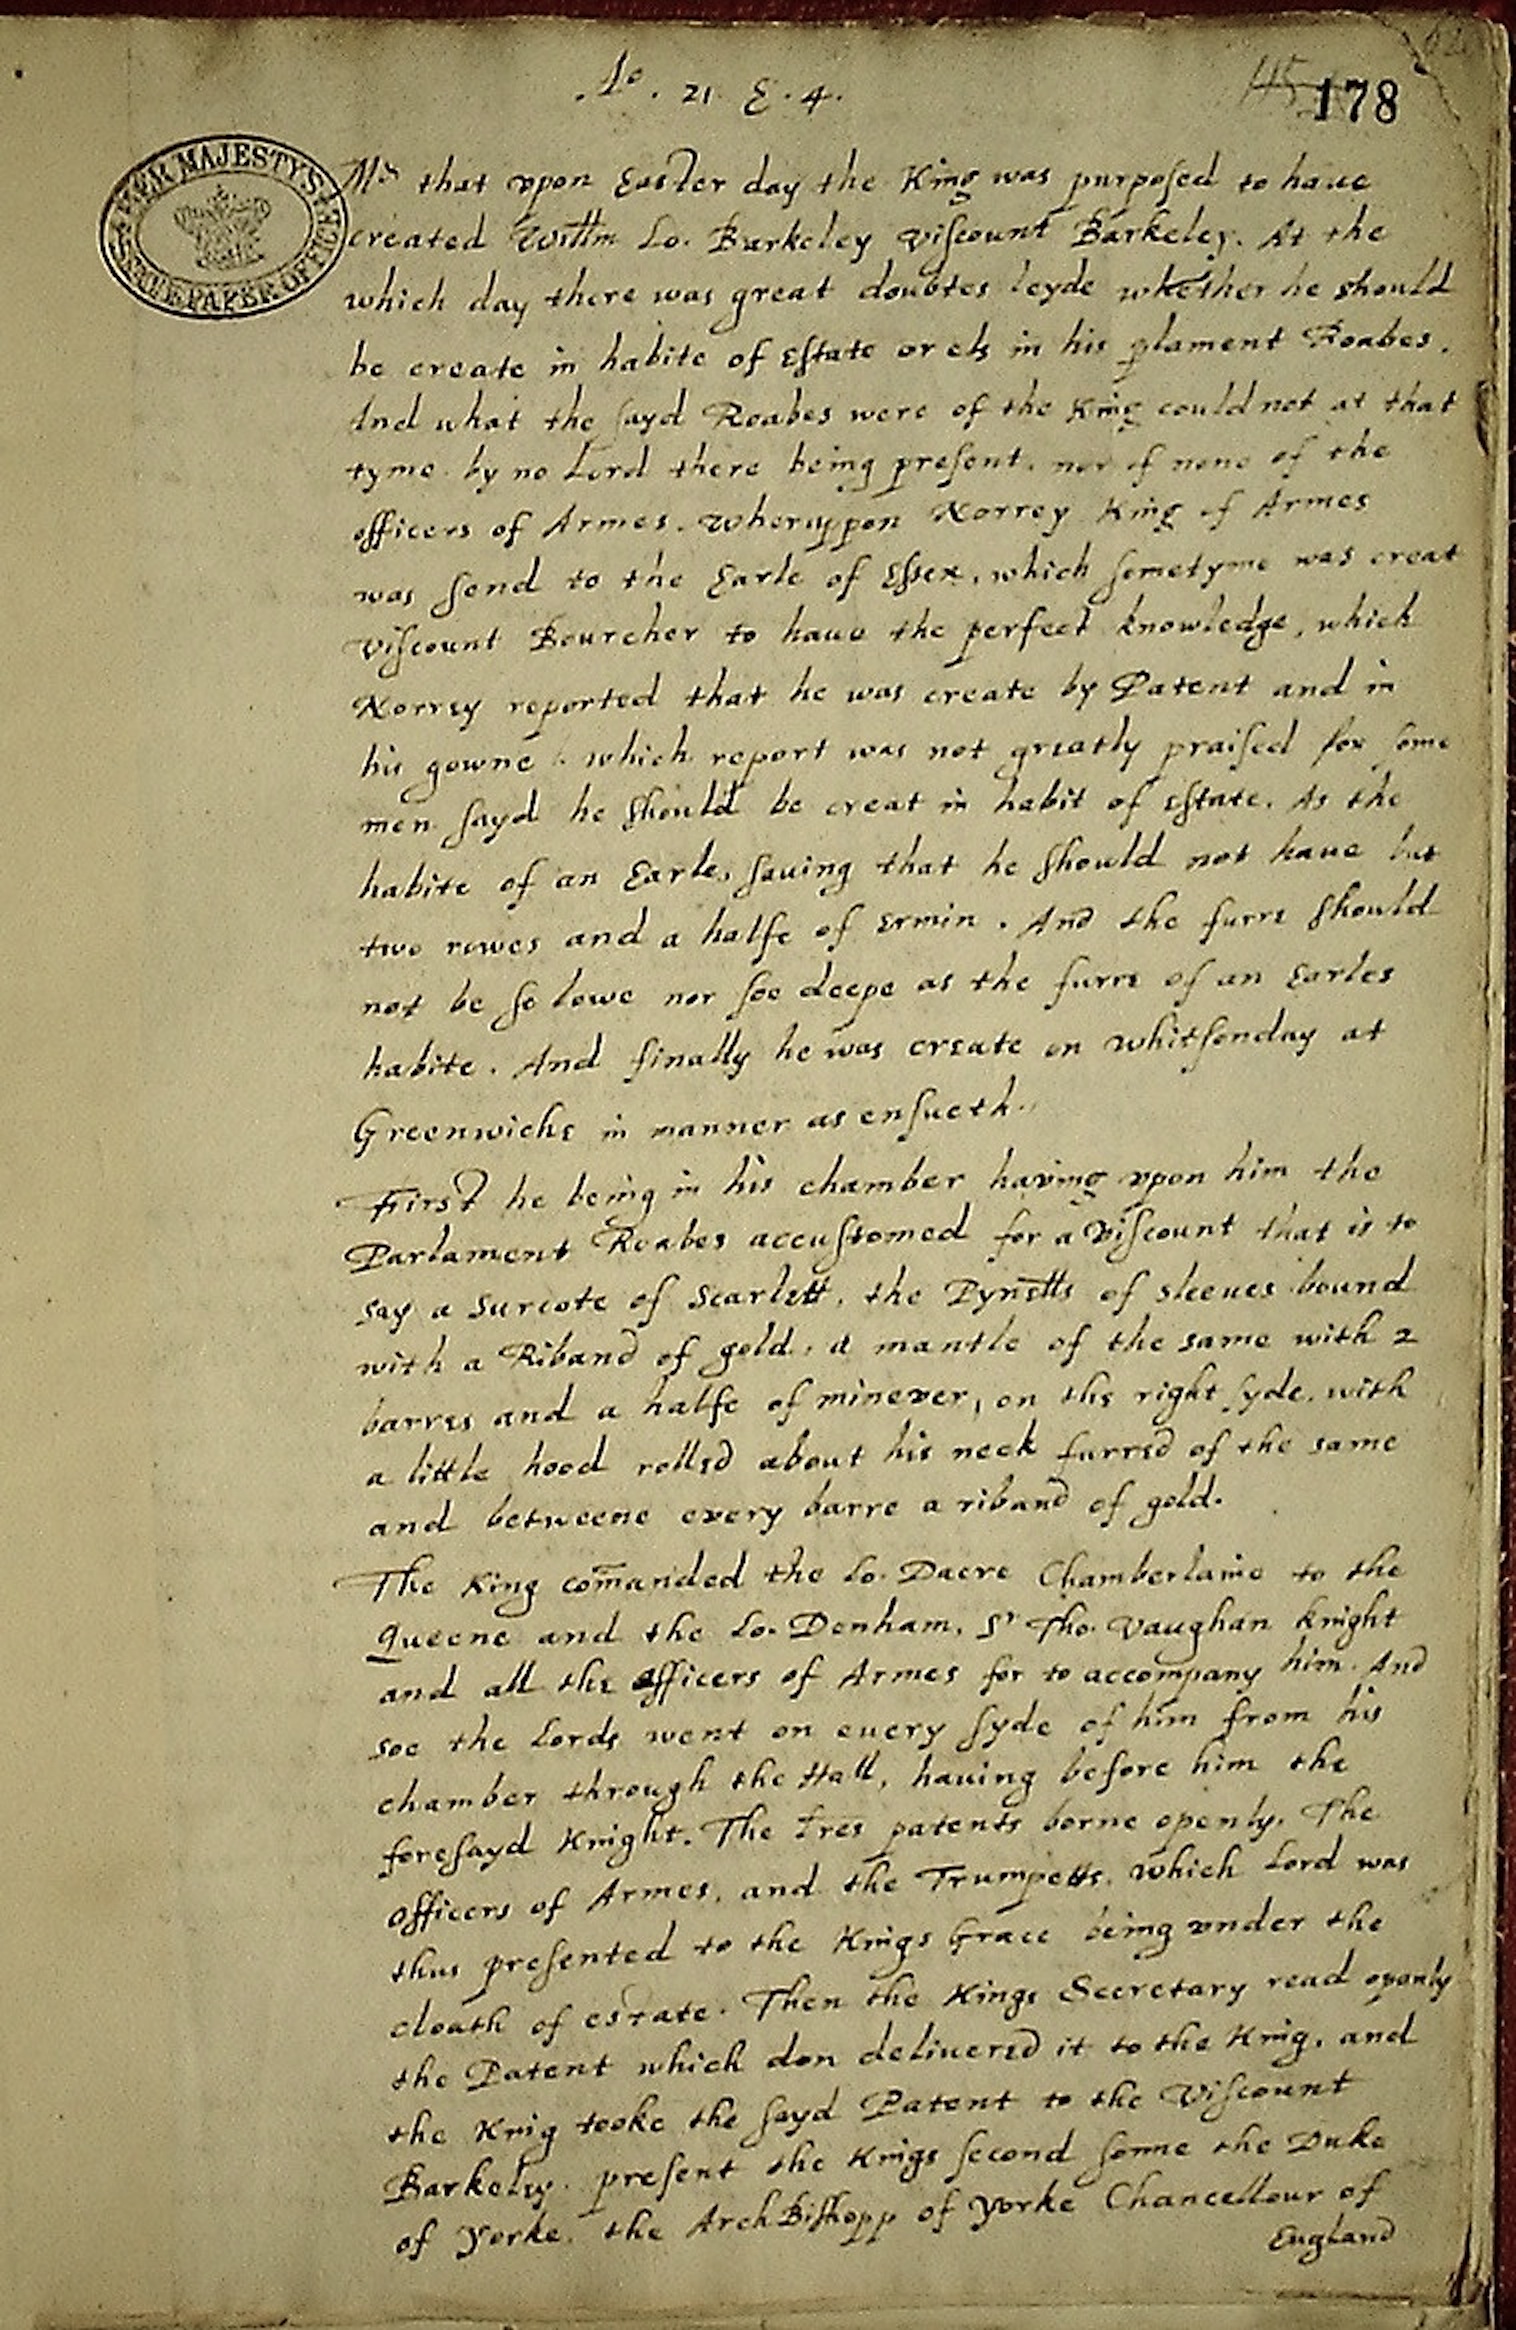 Ao. 21. E. 4.
178
HER MAJESTY'S STATE PAPER OFFICE
Md that vpon Easter day the King was purposed to haue
created Willm Lo. Barkeley viscount Barkeley. At the
which day there was great doubtes leyde whether he should
be create in habite of Estate or els in his plament Roabes.
And what the sayd Roabes were of the King could not at that
tyme by no Lord there being present. nor of none of the
officers of Armes. wheruppon Norrey King of Armes
was send to the Earle of Essex, which sometyme was creat
viscount Bourcher to haue the perfect knowledge, which
Norrey reported that he was create by Patent and in
his gowne. which report was not greatly praised for some
men sayd he should be creat in habit of Estate. As the
habite of an Earle, sauing that he should not haue but
two rowes and a halfe of Ermin. And the furre should
not be so lowe nor soe deepe as the furre of an Earles
habite. And finally he was create on whitsonday at
Greenwiche in manner as ensueth.
First he being in his chamber having vpon him the
Parlament Roabes accustomed for a viscount that is to
say a surcote of scarlett, the Pynetts of sleeues bound
with a Riband of gold, a mantle of the same with 2
barres and a halfe of minever, on the right syde. with
a little hood rolled about his neck furred of the same
and betweene every barre a riband of gold.
The King com̄anded the Lo. Dacre Chamberlaine to the
Queene and the Lo. Denham, Sr Tho. Vaughan knight
and all the officers of Armes for to accompany him. And
soe the Lords went on euery syde of him from his
chamber through the Hall, hauing before him the
foresayd Knight. The tres patents borne openly. The
officers of Armes, and the Trumpetts. which Lord was
thus presented to the Kings Grace being vnder the
cloath of estate. Then the Kings Secretary read openly
the Patent which don deliuered it to the King, and
the King tooke the sayd Patent to the Viscount
Barkeley. present the Kings second sonne the Duke
of Yorke. the ArchBishopp of Yorke Chancellour of
England